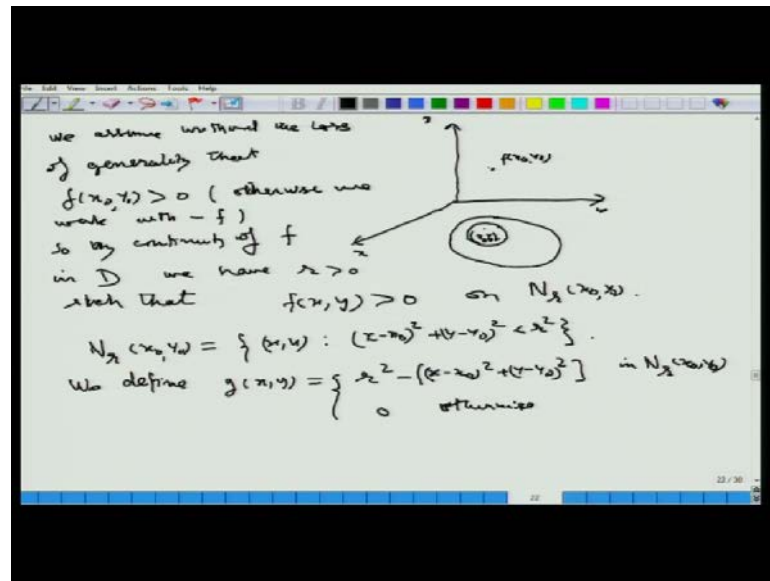 File Edit View Insert Actions Tools Help
we assume without the loss
of generality that
f(x₀, y₀) > 0 ( otherwise we
work with - f )
so by continuity of f
in D we have r > 0
such that f(x, y) > 0 on N_r(x₀, y₀).
N_r(x₀, y₀) = { (x, y) : (x-x₀)² + (y-y₀)² < r² }.
We define g(x, y) = { r² - [(x-x₀)² + (y-y₀)²] in N_r(x₀, y₀)
0 otherwise
z
f(x₀, y₀)
y
(x₀, y₀)
x
22 / 30
22